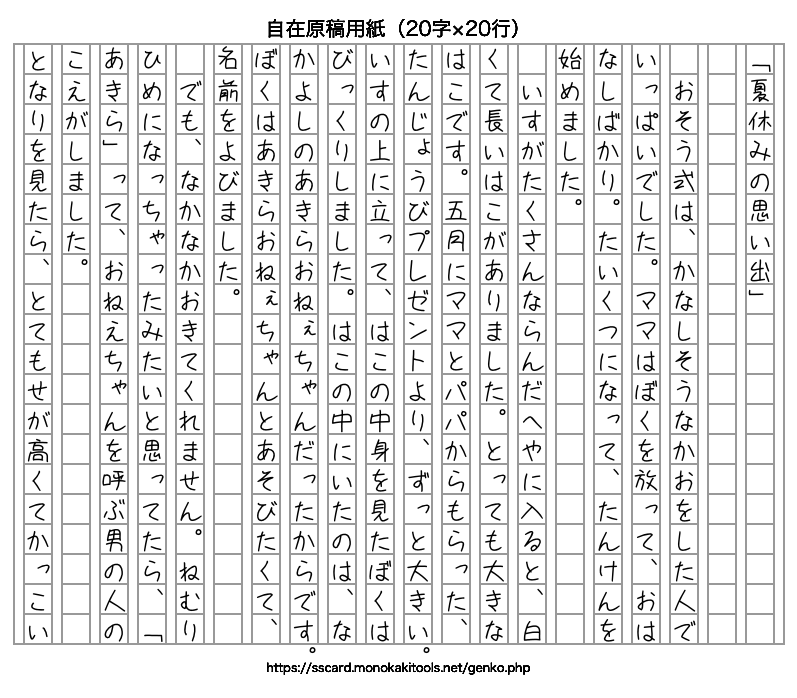 自在原稿用紙（20字×20行）
「夏休みの思い出」
おそう式は、かなしそうなかおをした人で
いっぱいでした。ママはぼくを放って、おは
なしばかり。たいくつになって、たんけんを
始めました。
いすがたくさんならんだへやに入ると、白
くて長いはこがありました。とっても大きな
はこです。五月にママとパパからもらった、
たんじょうびプレゼントより、ずっと大きい。
いすの上に立って、はこの中身を見たぼくは
びっくりしました。はこの中にいたのは、な
かよしのあきらおねぇちゃんだったからです。
ぼくはあきらおねぇちゃんとあそびたくて、
名前をよびました。
でも、なかなかおきてくれません。ねむり
ひめになっちゃったみたいと思ってたら、「
あきら」って、おねえちゃんを呼ぶ男の人の
こえがしました。
となりを見たら、とてもせが高くてかっこい
https://sscard.monokakitools.net/genko.php